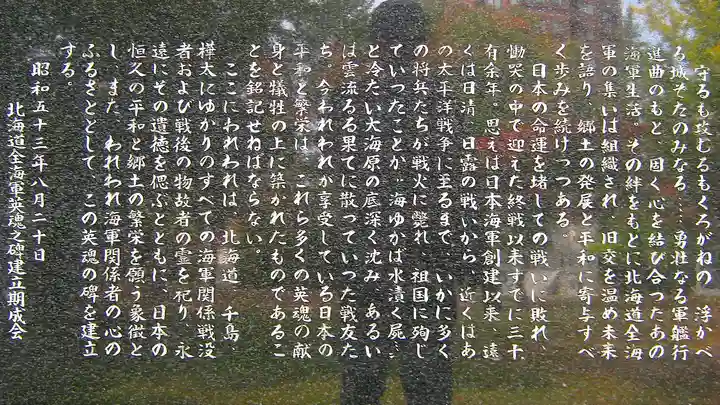 守るも攻むるもくろがねの　浮かべ
る城ぞたのみなる……勇壮なる軍艦行
進曲のもと　固く心を結び合ったあの
海軍生活。その絆をもとに北海道全海
軍の集いは組織され　旧交を温め未来
を語り　郷土の発展と平和に寄与すべ
く歩みを続けつつある。
日本の命運を堵しての戦いに敗れ、
慟哭の中で迎えた終戦以来すでに三十
有余年。思えば日本海軍創建以来、遠
くは日清　日露の戦いから、近くはあ
の太平洋戦争に至るまで　いかに多く
の将兵たちが戦火に斃れ　祖国に殉じ
ていったことか…海ゆかば水漬く屍…
と冷たい大海原の底深く沈み　あるい
は雲流るる果てに散っていった戦友た
ち。今われわれが享受している日本の
平和と繁栄は　これら多くの英魂の献
身と犠牲の上に築かれたものであるこ
とを銘記せねばならない。
ここにわれわれは　北海道　千島、
樺太にゆかりのすべての海軍関係戦没
者および戦後の物故者の霊を祀り、永
遠にその遺徳を偲ぶとともに、日本の
恒久の平和と郷土の繁栄を願う象徴と
し　また　われわれ海軍関係者の心の
ふるさととして、この英魂の碑を建立
する。
昭和五十三年八月二十日
北海道全海軍英魂之碑建立期成会